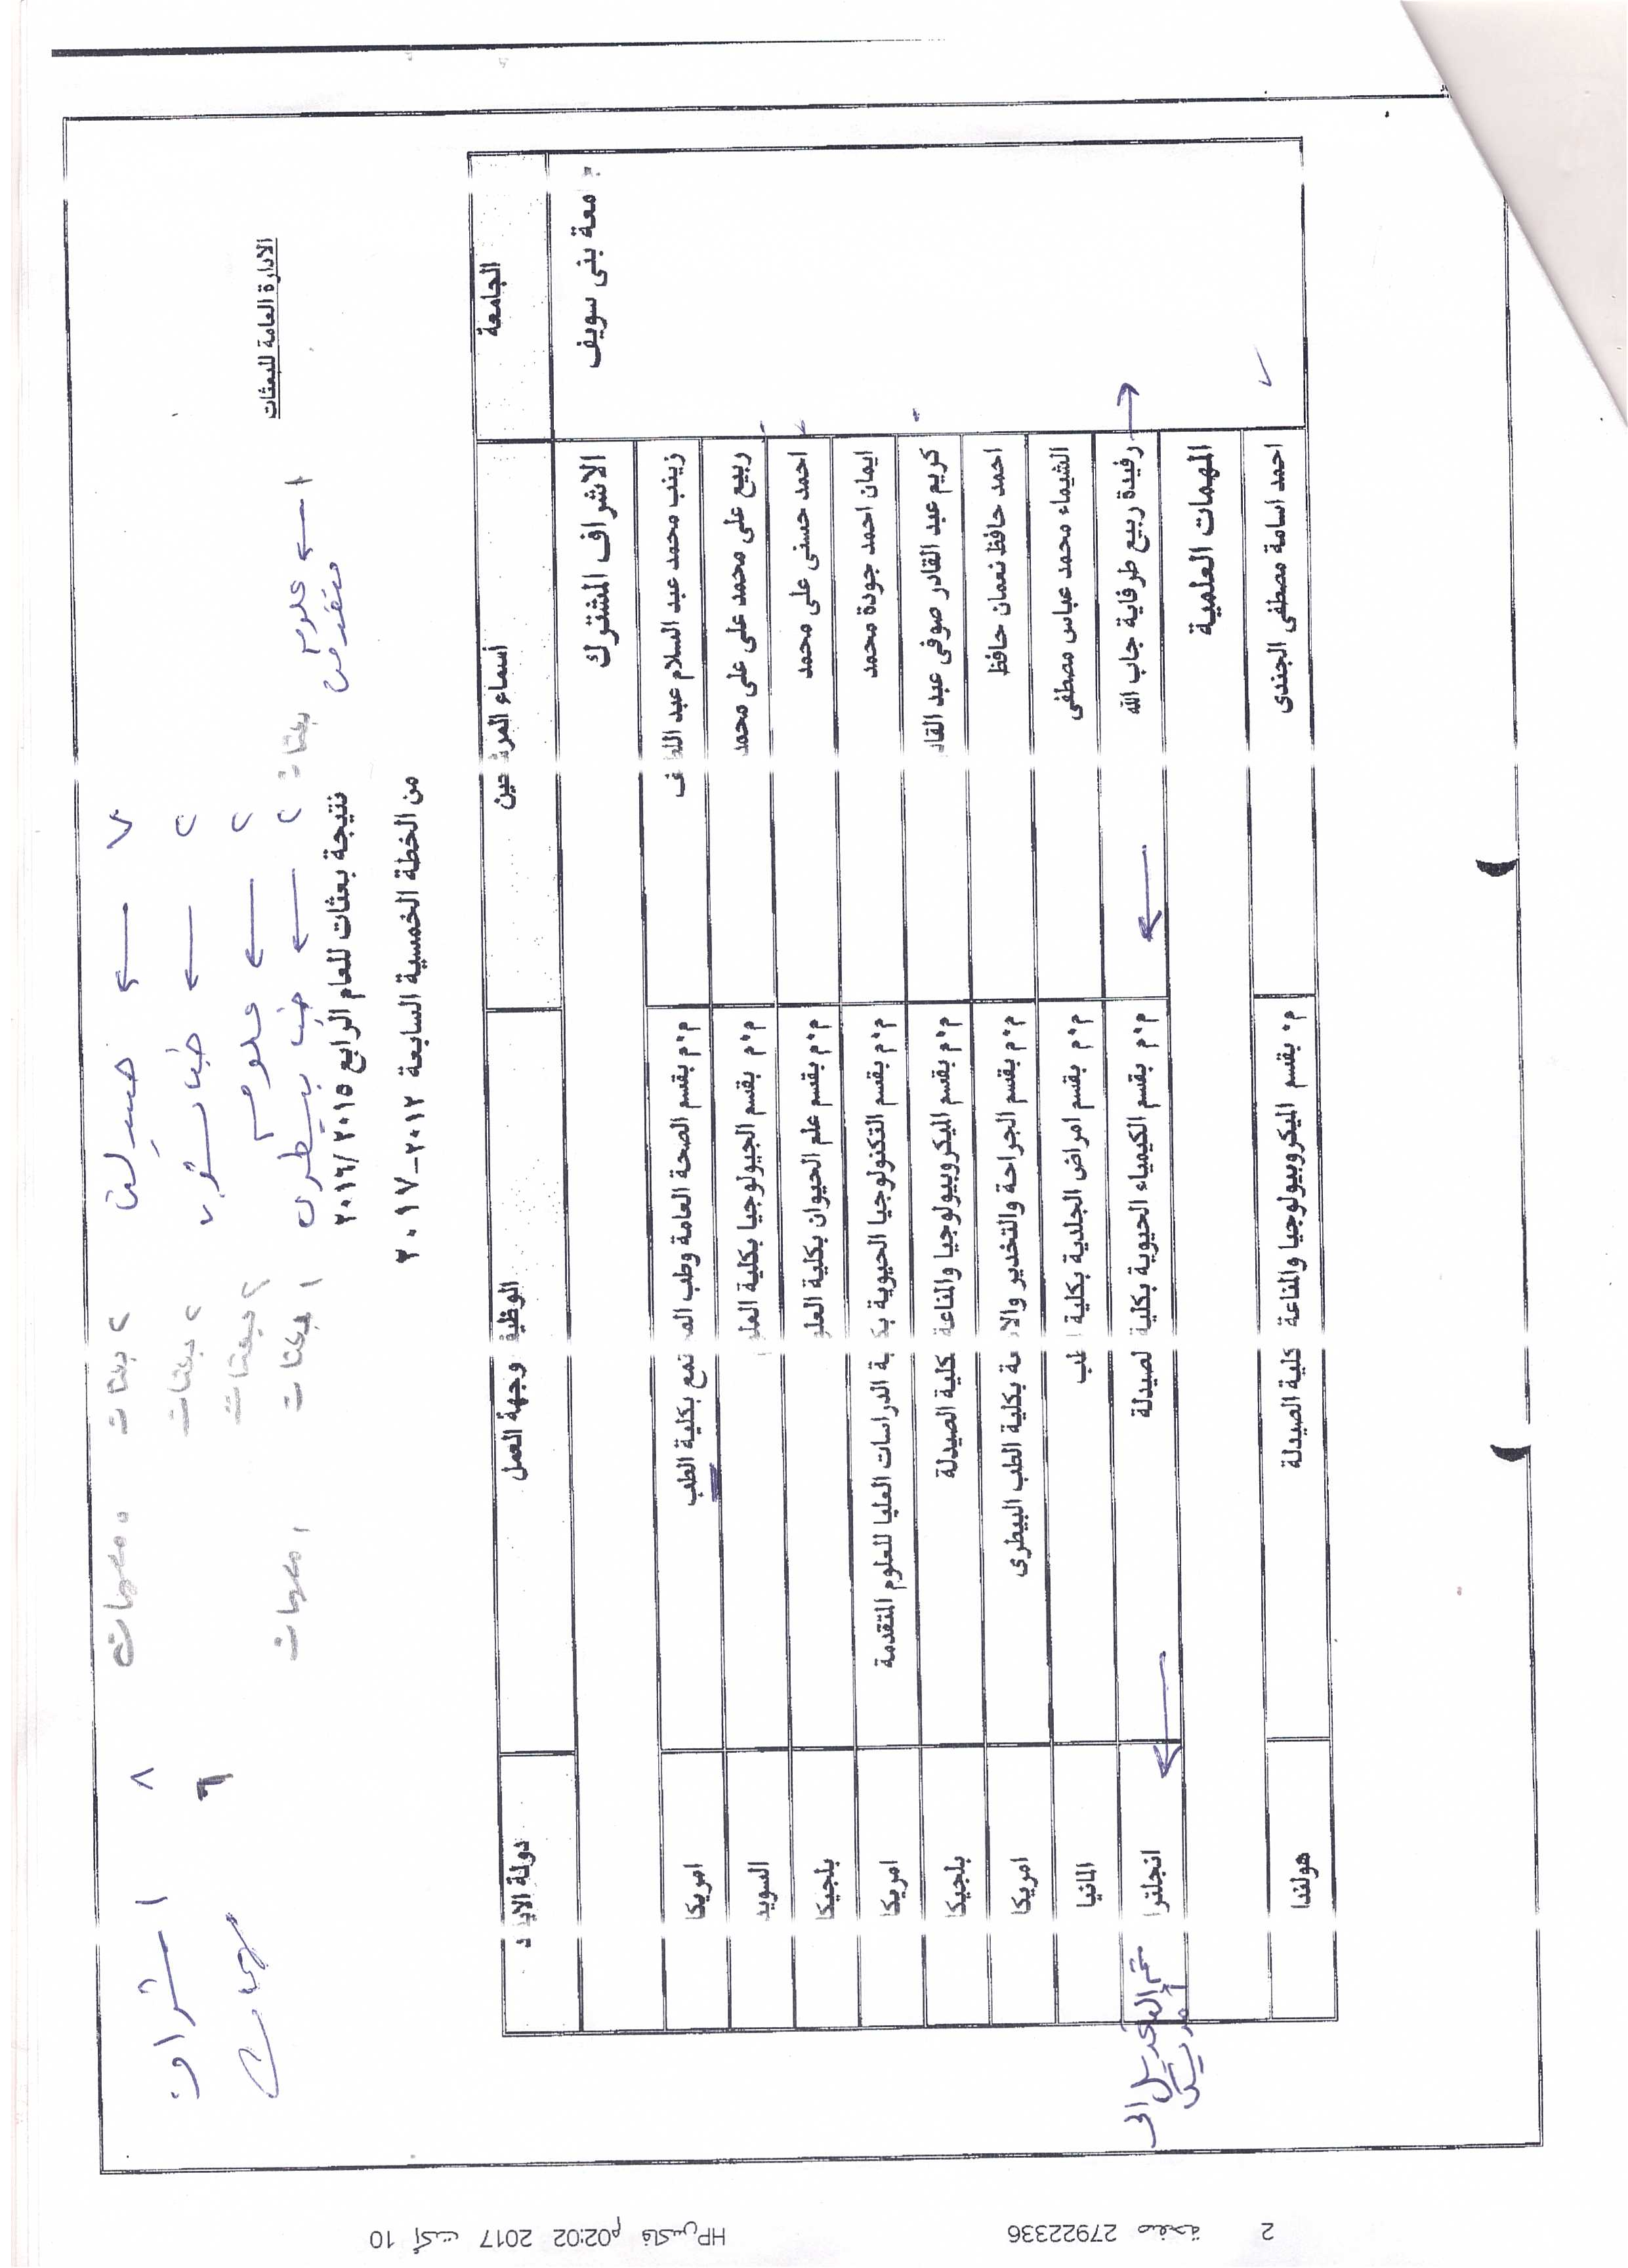 الادارة العامة للبعثات
صيدلة ← ٧
٢ بعثات
مهمات
طب بشرى ← ٢
٢ بعثات
علوم ← ٢
٢ بعثات
طب بيطرى ← ٢
١ بعثات
١ مهمات
علوم متقدمة ← ١
بعثات
اشراف ٨
مهمات ٦
نتيجة بعثات للعام الرابع ٢٠١٦/٢٠١٥
من الخطة الخمسية السابعة ٢٠١٢-٢٠١٧
الجامعة أسماء المرشحين الوظيفة وجهة العمل دولة الايفاد
جامعة بنى سويف الاشراف المشترك
زينب محمد عبد السلام عبد اللطيف م٠م بقسم الصحة العامة وطب المجتمع بكلية الطب امريكا
ربيع على محمد على على محمد م٠م بقسم الجيولوجيا بكلية العلوم السويد
احمد حسنى على محمد م٠م بقسم علم الحيوان بكلية العلوم بلجيكا
ايمان احمد جودة محمد م٠م بقسم التكنولوجيا الحيوية بكلية الدراسات العليا للعلوم المتقدمة امريكا
كريم عبد القادر صوفى عبد القادر م٠م بقسم الميكروبيولوجيا والمناعة بكلية الصيدلة بلجيكا
احمد حافظ نعمان حافظ م٠م بقسم الجراحة والتخدير والاشعة بكلية الطب البيطرى امريكا
الشيماء محمد عباس مصطفى م٠م بقسم امراض الجلدية بكلية الطب المانيا
رفيدة ربيع طرفاية جاب الله م٠م بقسم الكيمياء الحيوية بكلية الصيدلة انجلترا
تم التعديل الى امريكا
المهمات العلمية
احمد اسامة مصطفى الجندى م٠ بقسم الميكروبيولوجيا والمناعة بكلية الصيدلة هولندا
10 أكت 2017 02:02م فاكس HP 27922336 صفحة 2